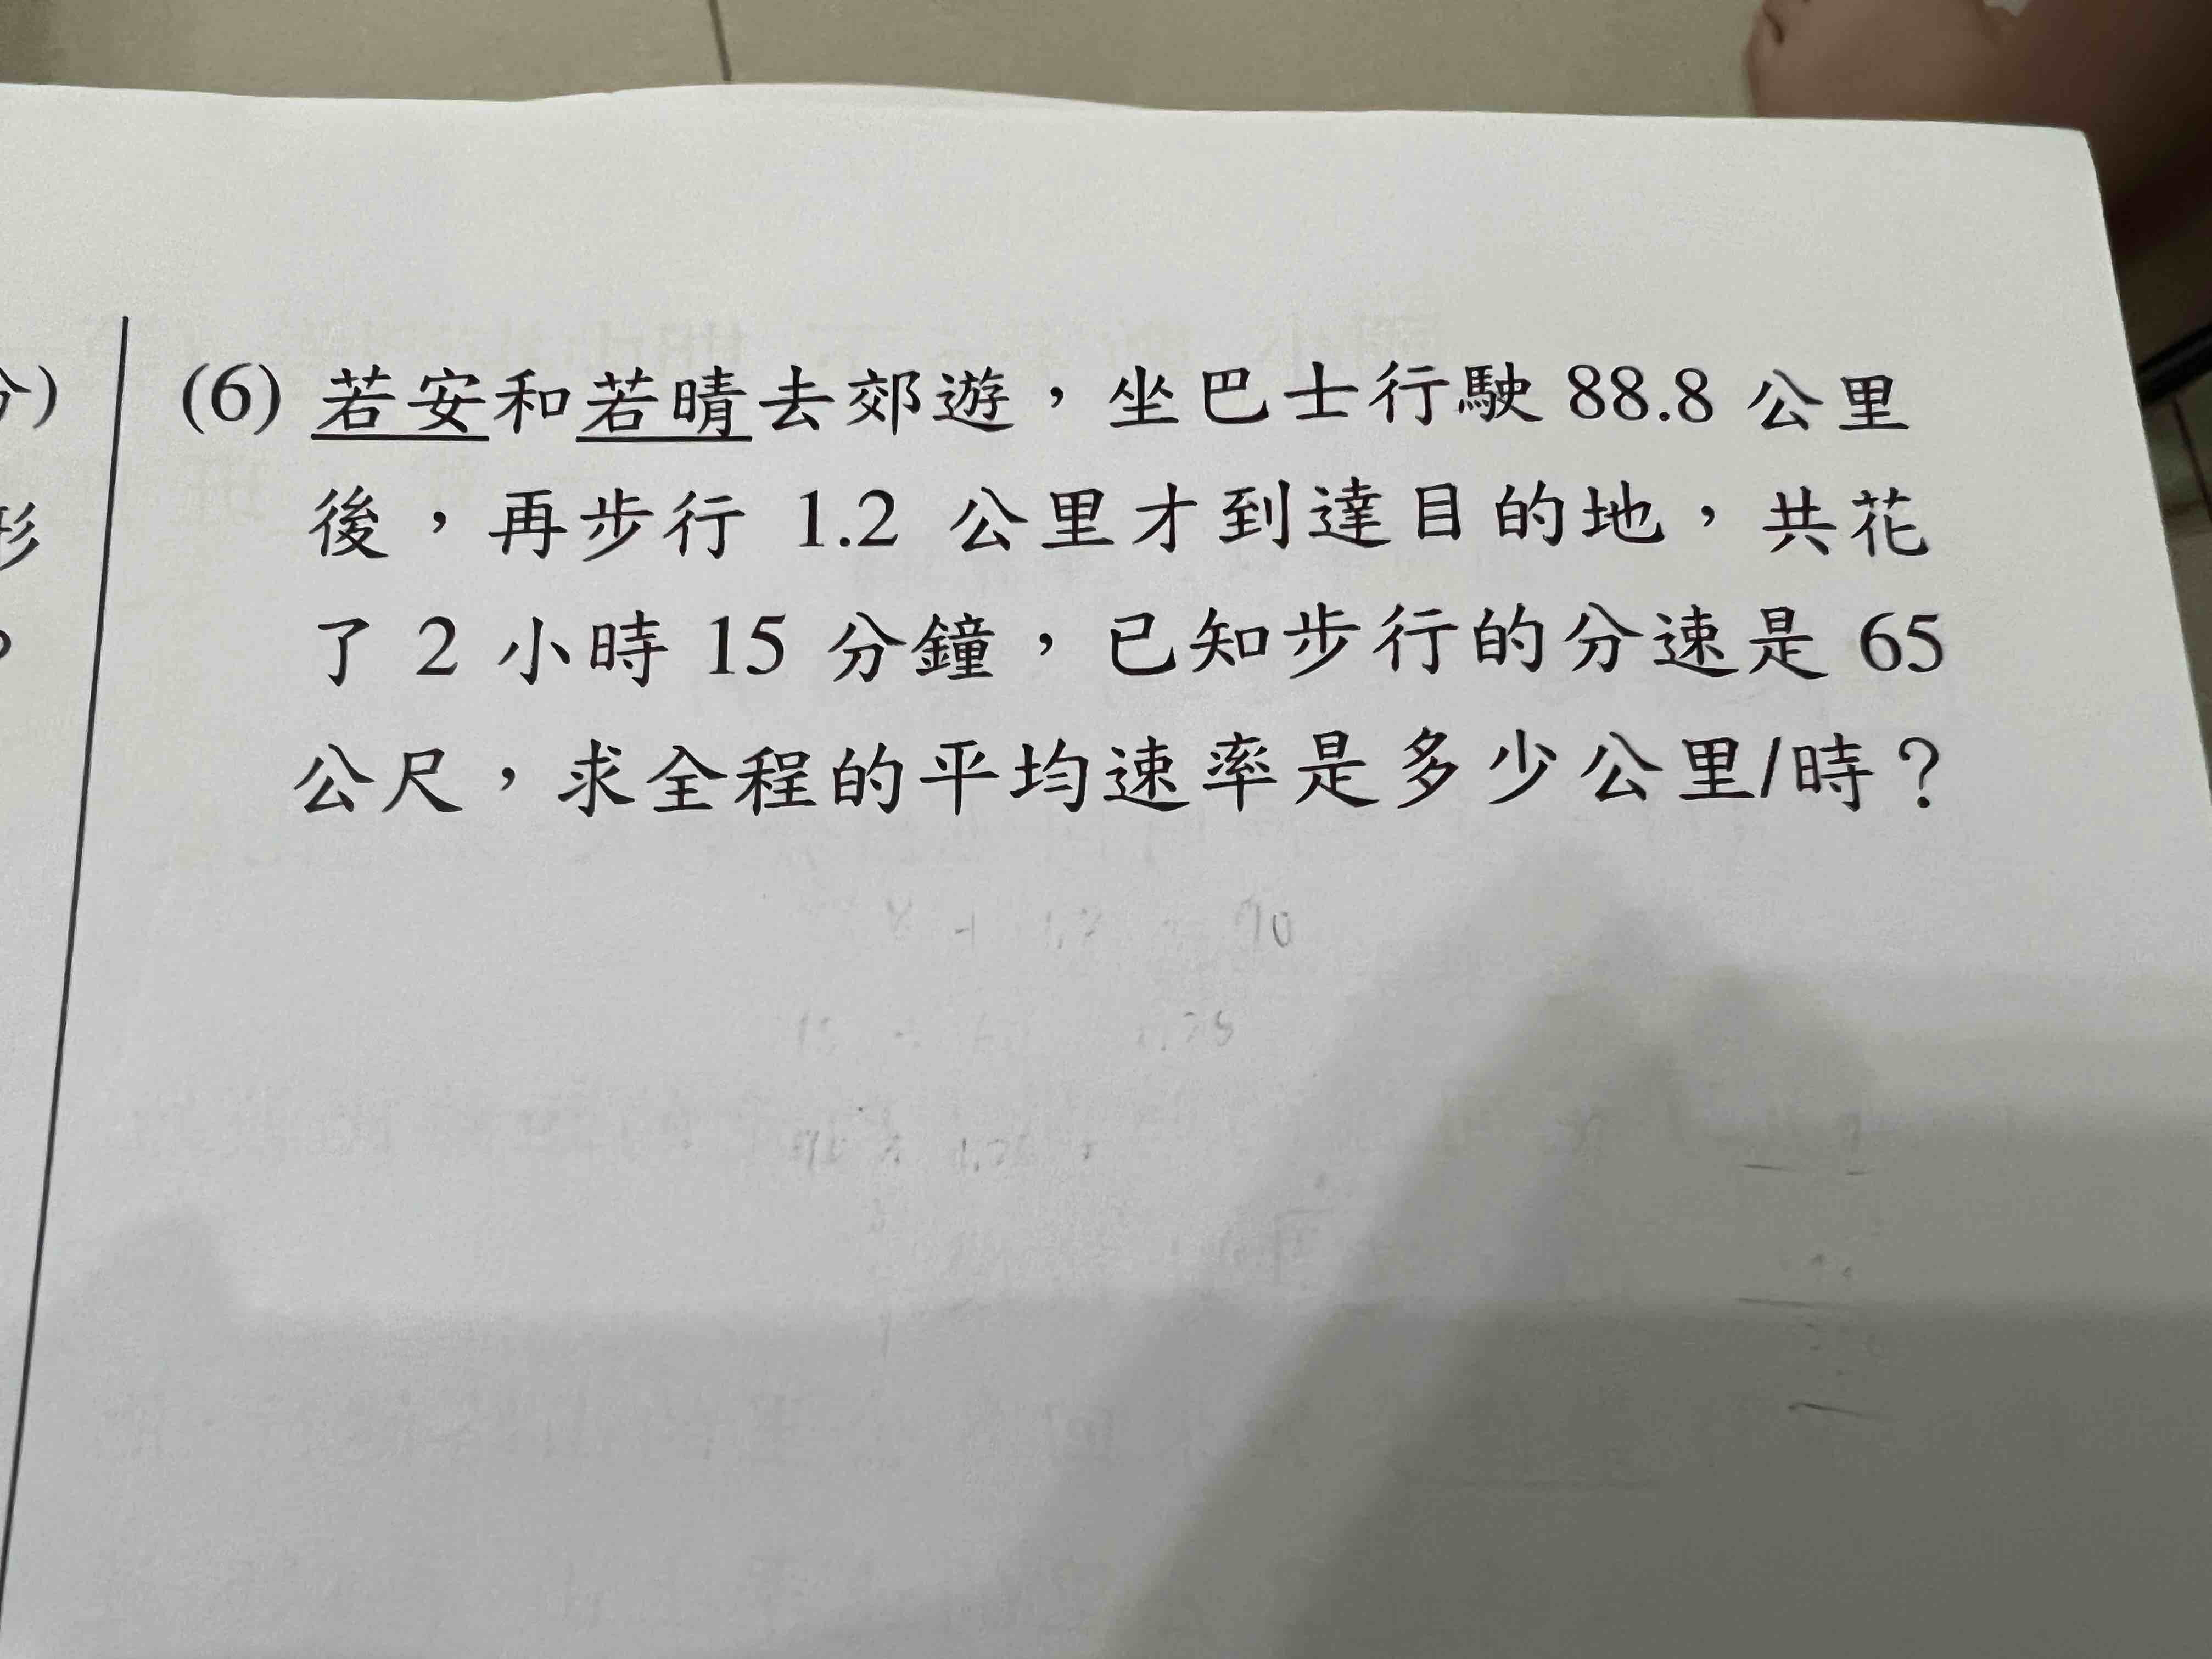 (6) 若安和若晴去郊遊，坐巴士行駛 88.8 公里
後，再步行 1.2 公里才到達目的地，共花
了 2 小時 15 分鐘，已知步行的分速是 65
公尺，求全程的平均速率是多少公里/時？